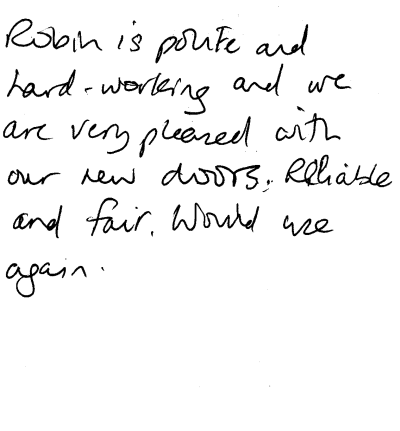 Robin is polite and
hard-working and we
are very pleased with
our new doors. Reliable
and fair. Would use
again.